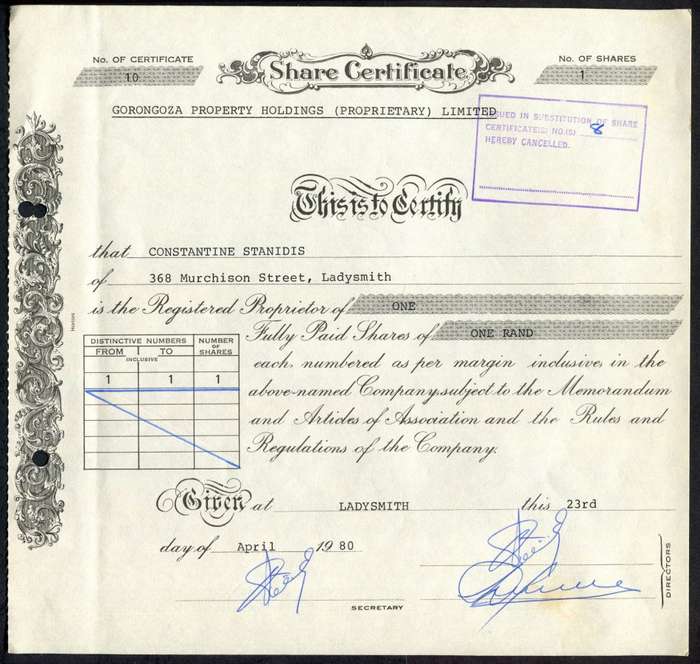 No. OF CERTIFICATE
10
Share Certificate
No. OF SHARES
1
GORONGOZA PROPERTY HOLDINGS (PROPRIETARY) LIMITED
ISSUED IN SUBSTITUTION OF SHARE
CERTIFICATE(S) NO.(S) 8
HEREBY CANCELLED.
This is to Certify
that CONSTANTINE STANIDIS
of 368 Murchison Street, Ladysmith
is the Registered Proprietor of ONE
Fully Paid Shares of ONE RAND
each, numbered as per margin inclusive, in the
above-named Company, subject to the Memorandum
and Articles of Association and the Rules and
Regulations of the Company.
DISTINCTIVE NUMBERS
NUMBER OF SHARES
FROM TO
INCLUSIVE
1 1 1
Hortors
Given at LADYSMITH this 23rd
day of April 1980
SECRETARY
DIRECTORS